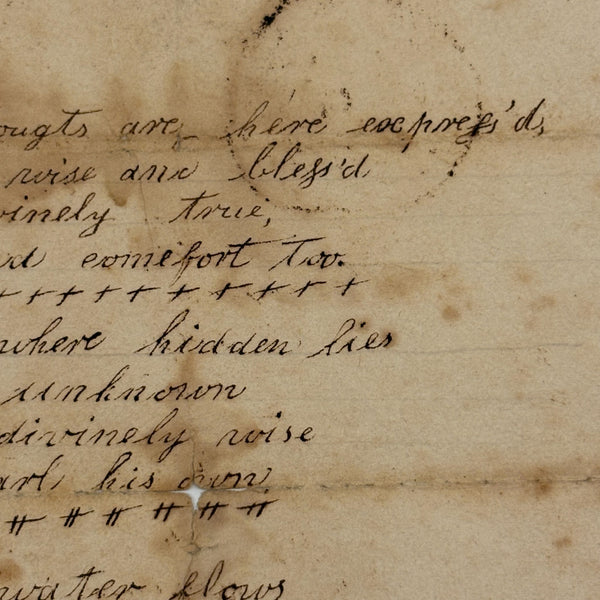 ougts are here express'd,
wise and bless'd
vinely true,
d comefort too.
+ + + + + + + + + + +
where hidden lies
unknown
divinely wise
arl his own
# # # # # #
water flows